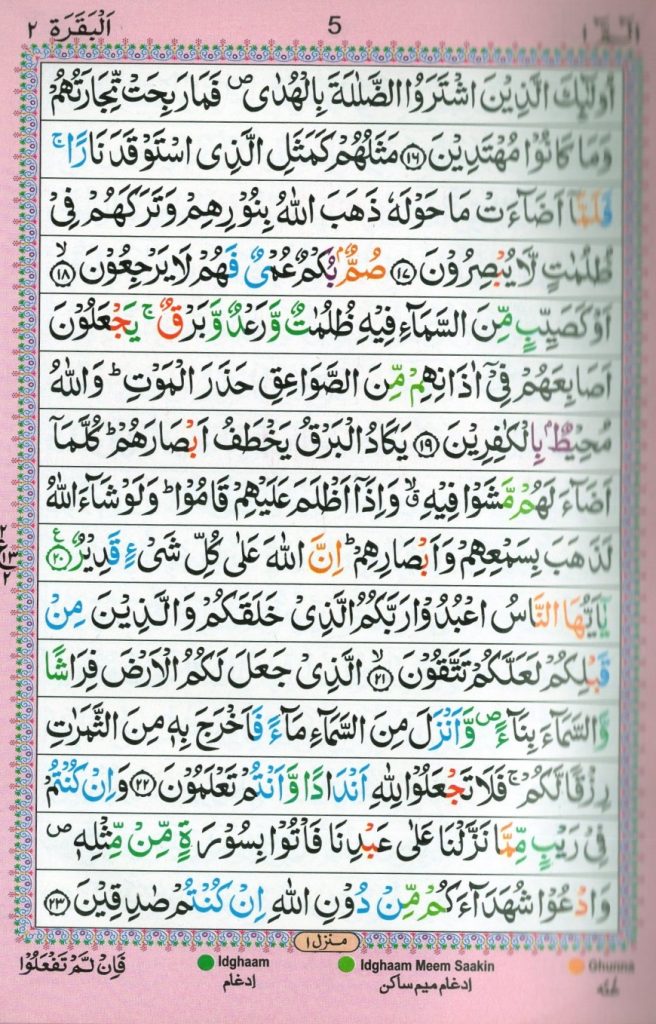 الٓمّٓ ١ 5 اَلْبَقَرَة ٢
اُولٰٓئِكَ الَّذِيْنَ اشْتَرَوُا الضَّلٰلَةَ بِالْهُدٰى ۪ فَمَا رَبِحَتْ تِّجَارَتُهُمْ
وَمَا كَانُوْا مُهْتَدِيْنَ ۝۱۶ مَثَلُهُمْ كَمَثَلِ الَّذِى اسْتَوْقَدَ نَارًا ۚ
فَلَمَّآ اَضَآءَتْ مَا حَوْلَهٗ ذَهَبَ اللّٰهُ بِنُوْرِهِمْ وَتَرَكَهُمْ فِىْ
ظُلُمٰتٍ لَّا يُبْصِرُوْنَ ۝۱۷ صُمٌّۢ بُكْمٌ عُمْىٌ فَهُمْ لَا يَرْجِعُوْنَ ۙ۝۱۸
اَوْ كَصَيِّبٍ مِّنَ السَّمَآءِ فِيْهِ ظُلُمٰتٌ وَّرَعْدٌ وَّبَرْقٌ ۚ يَجْعَلُوْنَ
اَصَابِعَهُمْ فِىْٓ اٰذَانِهِمْ مِّنَ الصَّوَاعِقِ حَذَرَ الْمَوْتِ ؕ وَاللّٰهُ
مُحِيْطٌۢ بِالْكٰفِرِيْنَ ۝۱۹ يَكَادُ الْبَرْقُ يَخْطَفُ اَبْصَارَهُمْ ؕ كُلَّمَآ
اَضَآءَ لَهُمْ مَّشَوْا فِيْهِ ۙۗ وَاِذَآ اَظْلَمَ عَلَيْهِمْ قَامُوْا ؕ وَلَوْ شَآءَ اللّٰهُ
لَذَهَبَ بِسَمْعِهِمْ وَاَبْصَارِهِمْ ؕ اِنَّ اللّٰهَ عَلٰى كُلِّ شَىْءٍ قَدِيْرٌ ۝۲۰ ع
يٰٓاَيُّهَا النَّاسُ اعْبُدُوْا رَبَّكُمُ الَّذِىْ خَلَقَكُمْ وَالَّذِيْنَ مِنْ
قَبْلِكُمْ لَعَلَّكُمْ تَتَّقُوْنَ ۙ۝۲۱ الَّذِىْ جَعَلَ لَكُمُ الْاَرْضَ فِرَاشًا
وَّالسَّمَآءَ بِنَآءً ۪ وَّاَنْزَلَ مِنَ السَّمَآءِ مَآءً فَاَخْرَجَ بِهٖ مِنَ الثَّمَرٰتِ
رِزْقًا لَّكُمْ ۚ فَلَا تَجْعَلُوْا لِلّٰهِ اَنْدَادًا وَّاَنْتُمْ تَعْلَمُوْنَ ۝۲۲ وَاِنْ كُنْتُمْ
فِىْ رَيْبٍ مِّمَّا نَزَّلْنَا عَلٰى عَبْدِنَا فَاْتُوْا بِسُوْرَةٍ مِّنْ مِّثْلِهٖ ۪
وَادْعُوْا شُهَدَآءَكُمْ مِّنْ دُوْنِ اللّٰهِ اِنْ كُنْتُمْ صٰدِقِيْنَ ۝۲۳
منزل ١
فَاِنْ لَّمْ تَفْعَلُوْا
Idghaam
ادغام
Idghaam Meem Saakin
ادغام میم ساکن
Ghunna
غنہ